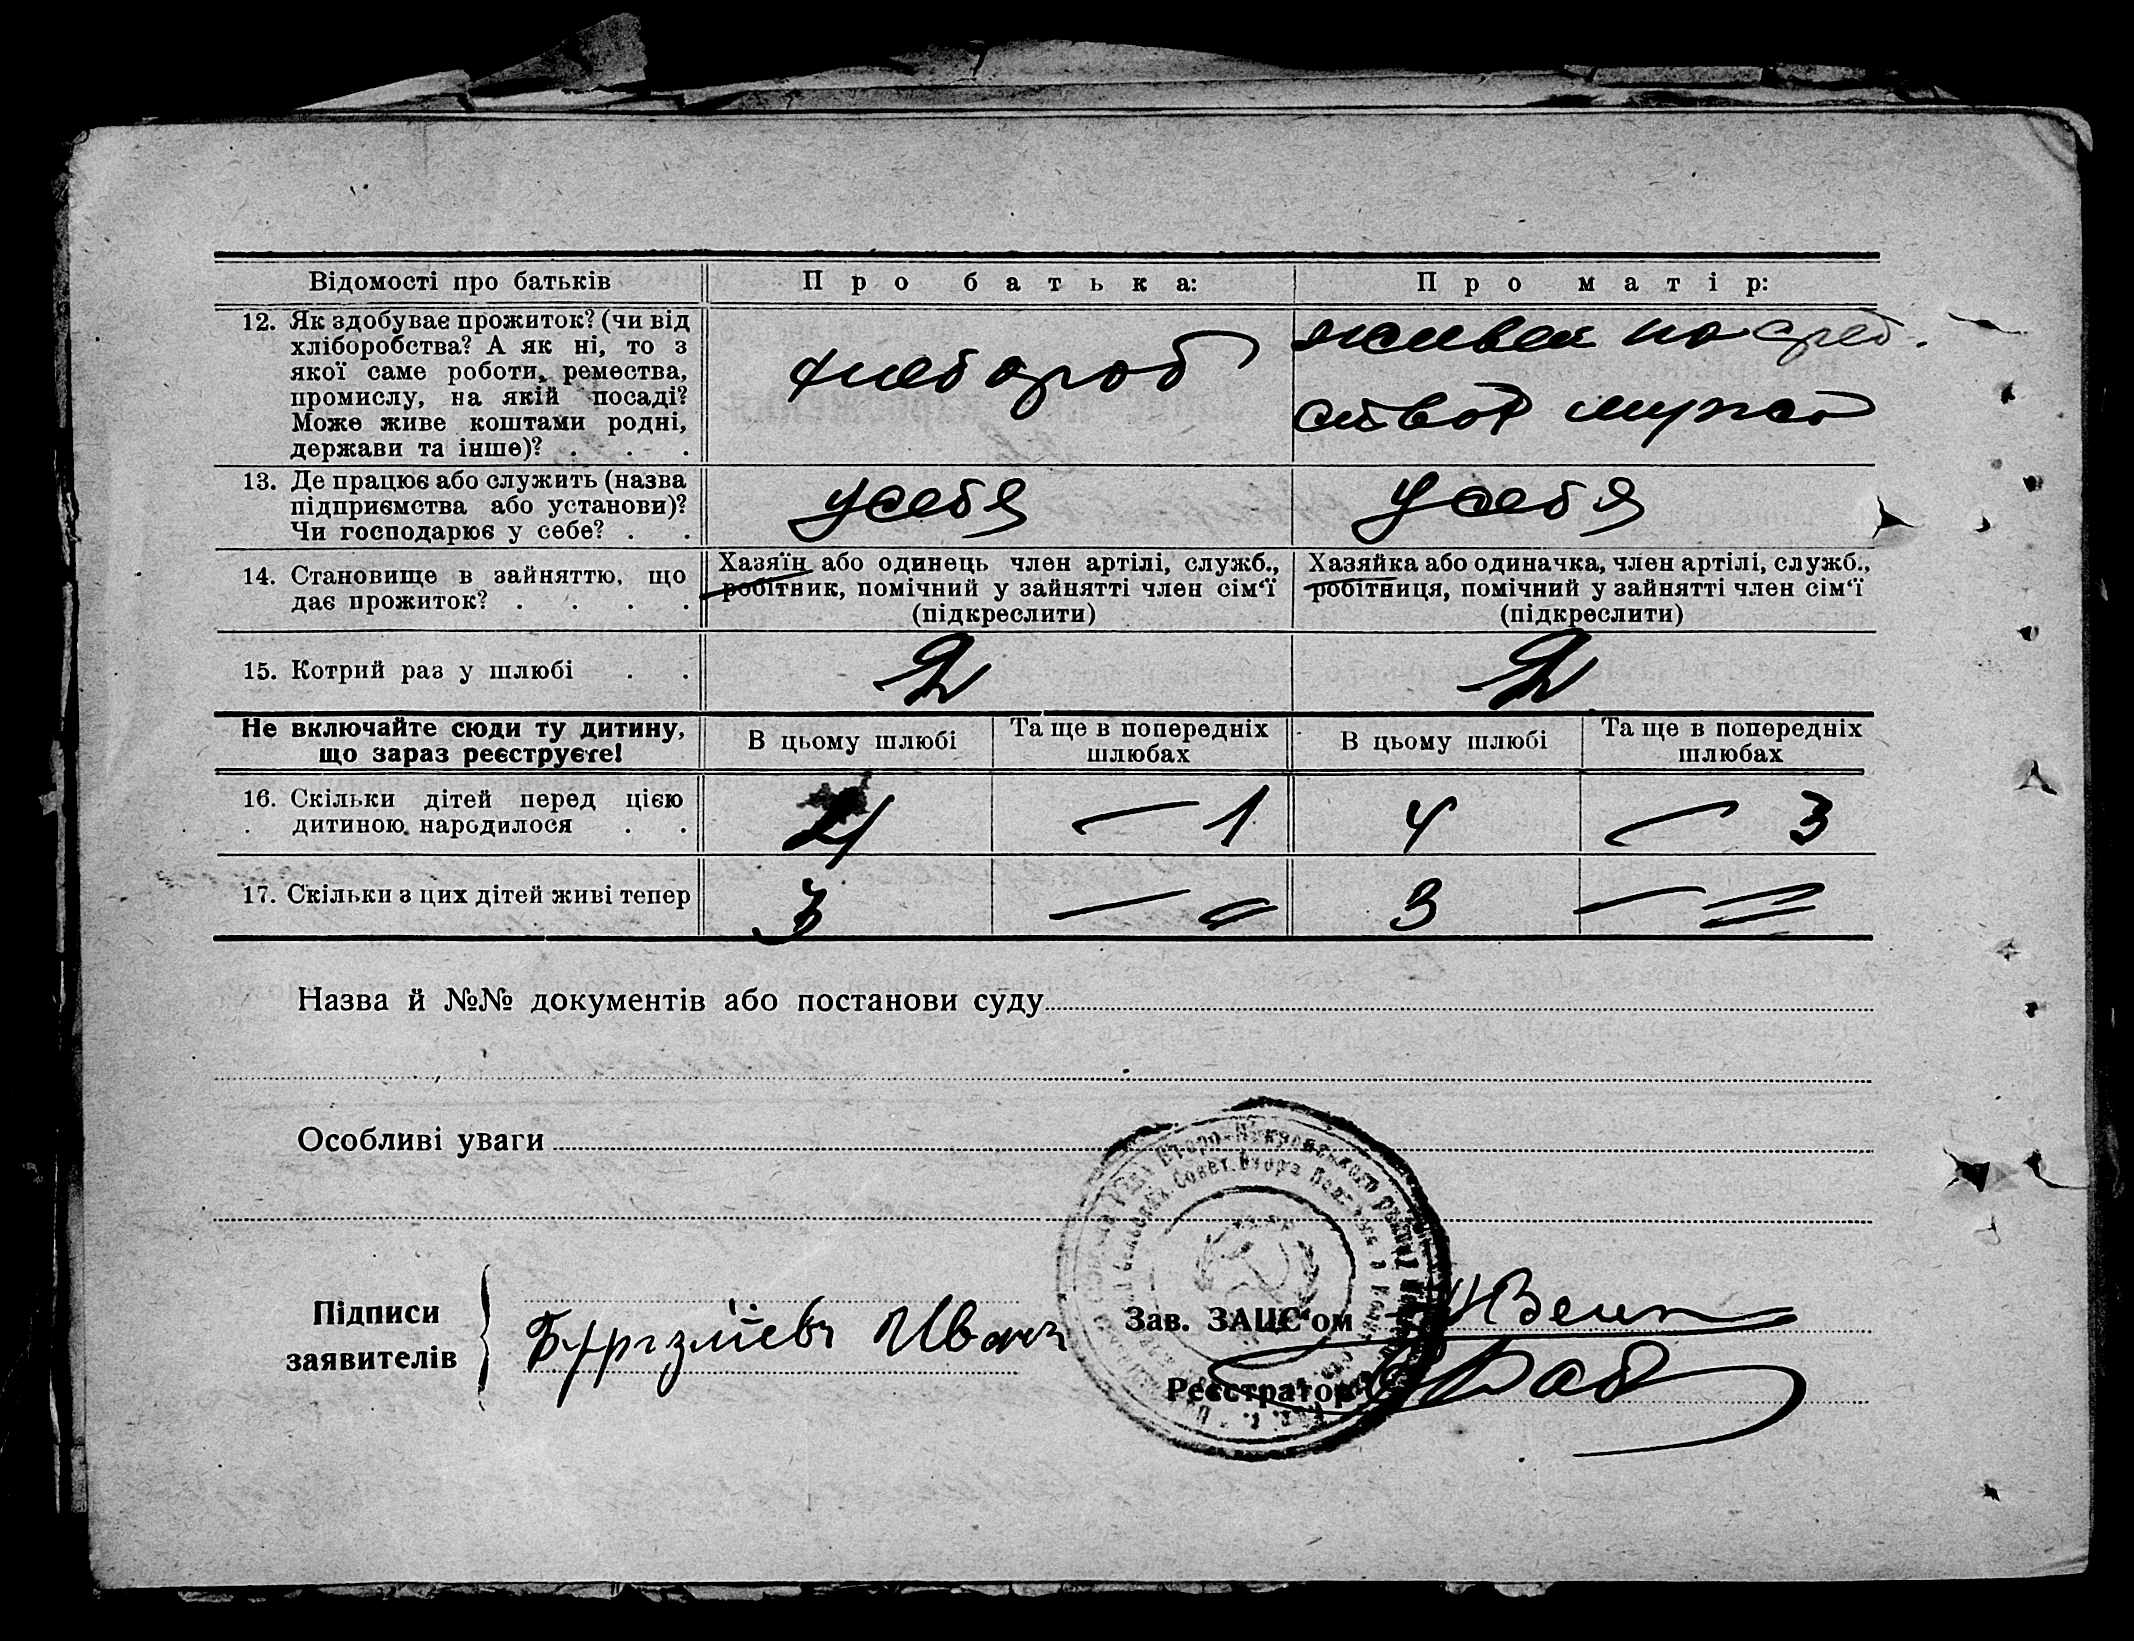 Відомості про батьків
Про батька:
Про матір:
12. Як здобуває прожиток? (чи від
хліборобства? А як ні, то з
якої саме роботи, ремества,
промислу, на якій посаді?
Може живе коштами родні,
держави та інше)? . . .
хлебороб
живет на сред.
ства мужа
13. Де працює або служить (назва
підприємства або установи)?
Чи господарює у себе? . .
у себя
у себя
14. Становище в зайняттю, що
дає прожиток? . . . .
Хазяїн або одинець член артілі, служб.,
робітник, помічний у зайнятті член сім'ї
(підкреслити)
Хазяйка або одиначка, член артілі, служб.,
робітниця, помічний у зайнятті член сім'ї
(підкреслити)
15. Котрий раз у шлюбі . .
2
2
Не включайте сюди ту дитину,
що зараз реєструєте!
В цьому шлюбі
Та ще в попередніх
шлюбах
В цьому шлюбі
Та ще в попередніх
шлюбах
16. Скільки дітей перед цією
дитиною народилося . .
4
— 1
4
— 3
17. Скільки з цих дітей живі тепер
3
—
3
— =
Назва й №№ документів або постанови суду
Особливі уваги
Підписи
заявителів
Иван
Зав. ЗАЦС'ом
Реєстратор